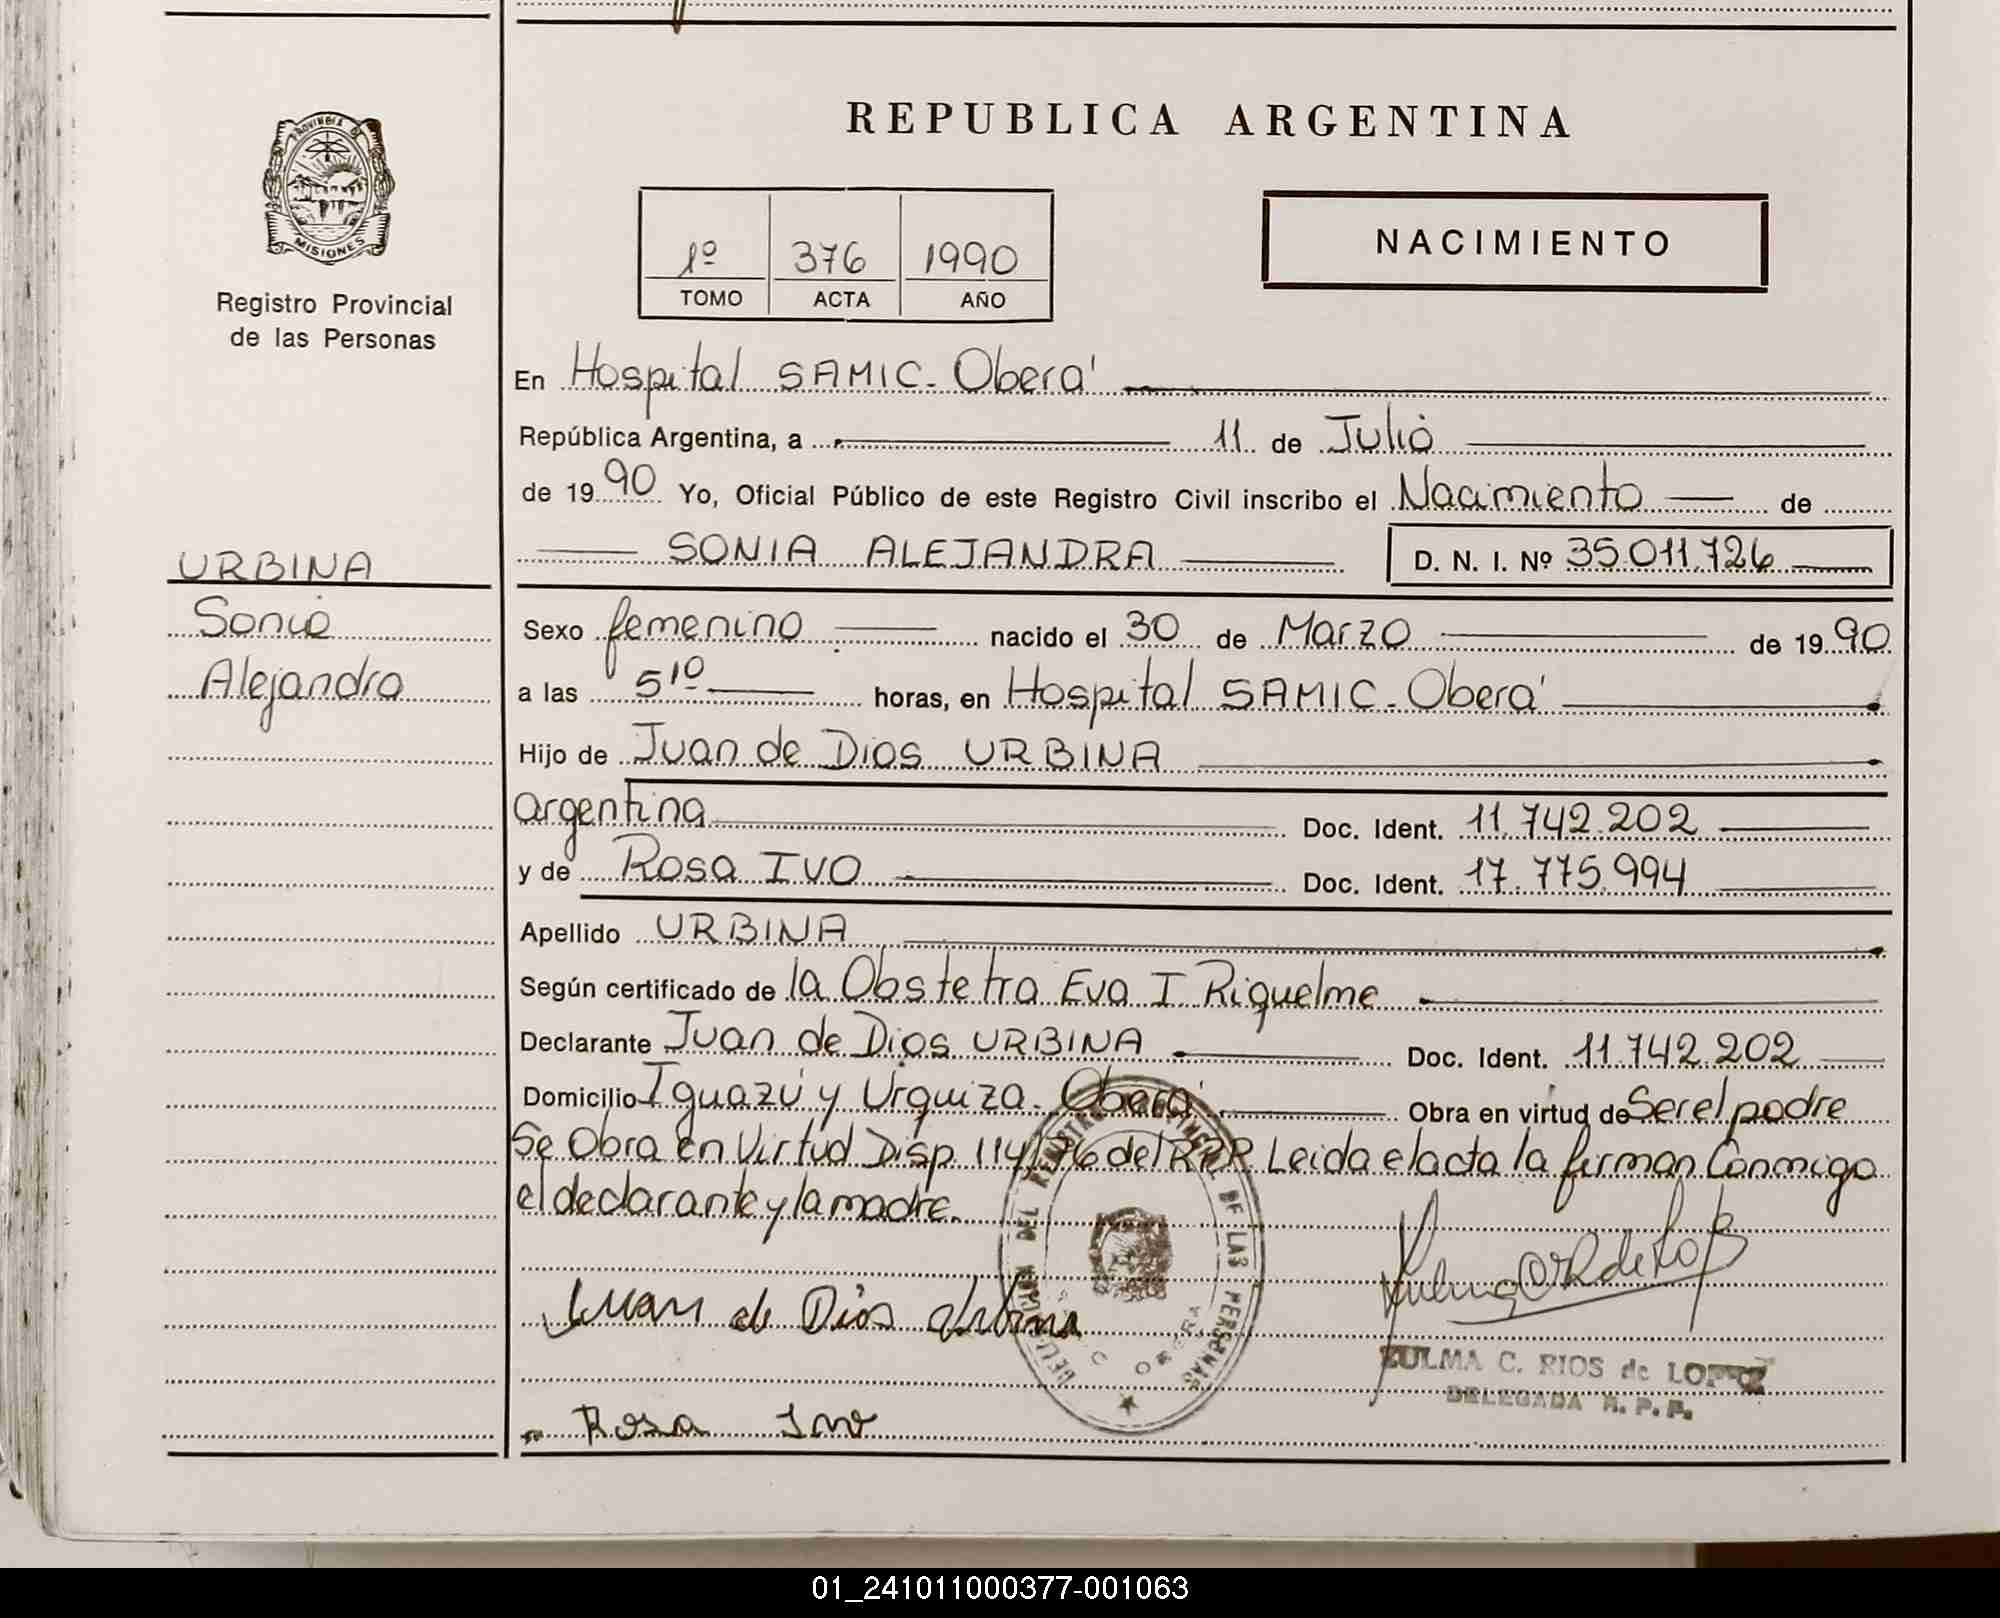 REPUBLICA ARGENTINA
PROVINCIA DE
MISIONES
Registro Provincial
de las Personas
1º 376 1990
TOMO ACTA AÑO
NACIMIENTO
En Hospital SAMIC - Oberá
República Argentina, a 11 de Julio
de 1990 Yo, Oficial Público de este Registro Civil inscribo el Nacimiento de
SONIA ALEJANDRA D. N. I. Nº 35.011.726
URBINA
Sonia
Alejandra
Sexo femenino nacido el 30 de Marzo de 1990
a las 5 10 horas, en Hospital SAMIC - Oberá
Hijo de Juan de Dios URBINA
argentina Doc. Ident. 11.742.202
y de Rosa IVO Doc. Ident. 17.775.994
Apellido URBINA
Según certificado de la Obstetra Eva I Riquelme
Declarante Juan de Dios URBINA Doc. Ident. 11.742.202
Domicilio Iguazú y Urquiza - Oberá Obra en virtud de Ser el padre
Se Obra en Virtud Disp. 114/76 del RPP. Leida el acta la firman Conmigo
el declarante y la madre.
Juan de Dios Urbina
DEL REGISTRO PROVINCIAL DE LAS PERSONAS
OBERA
ZULMA C. RIOS de LOPEZ
DELEGADA R. P. P.
Rosa Ivo
01_241011000377-001063